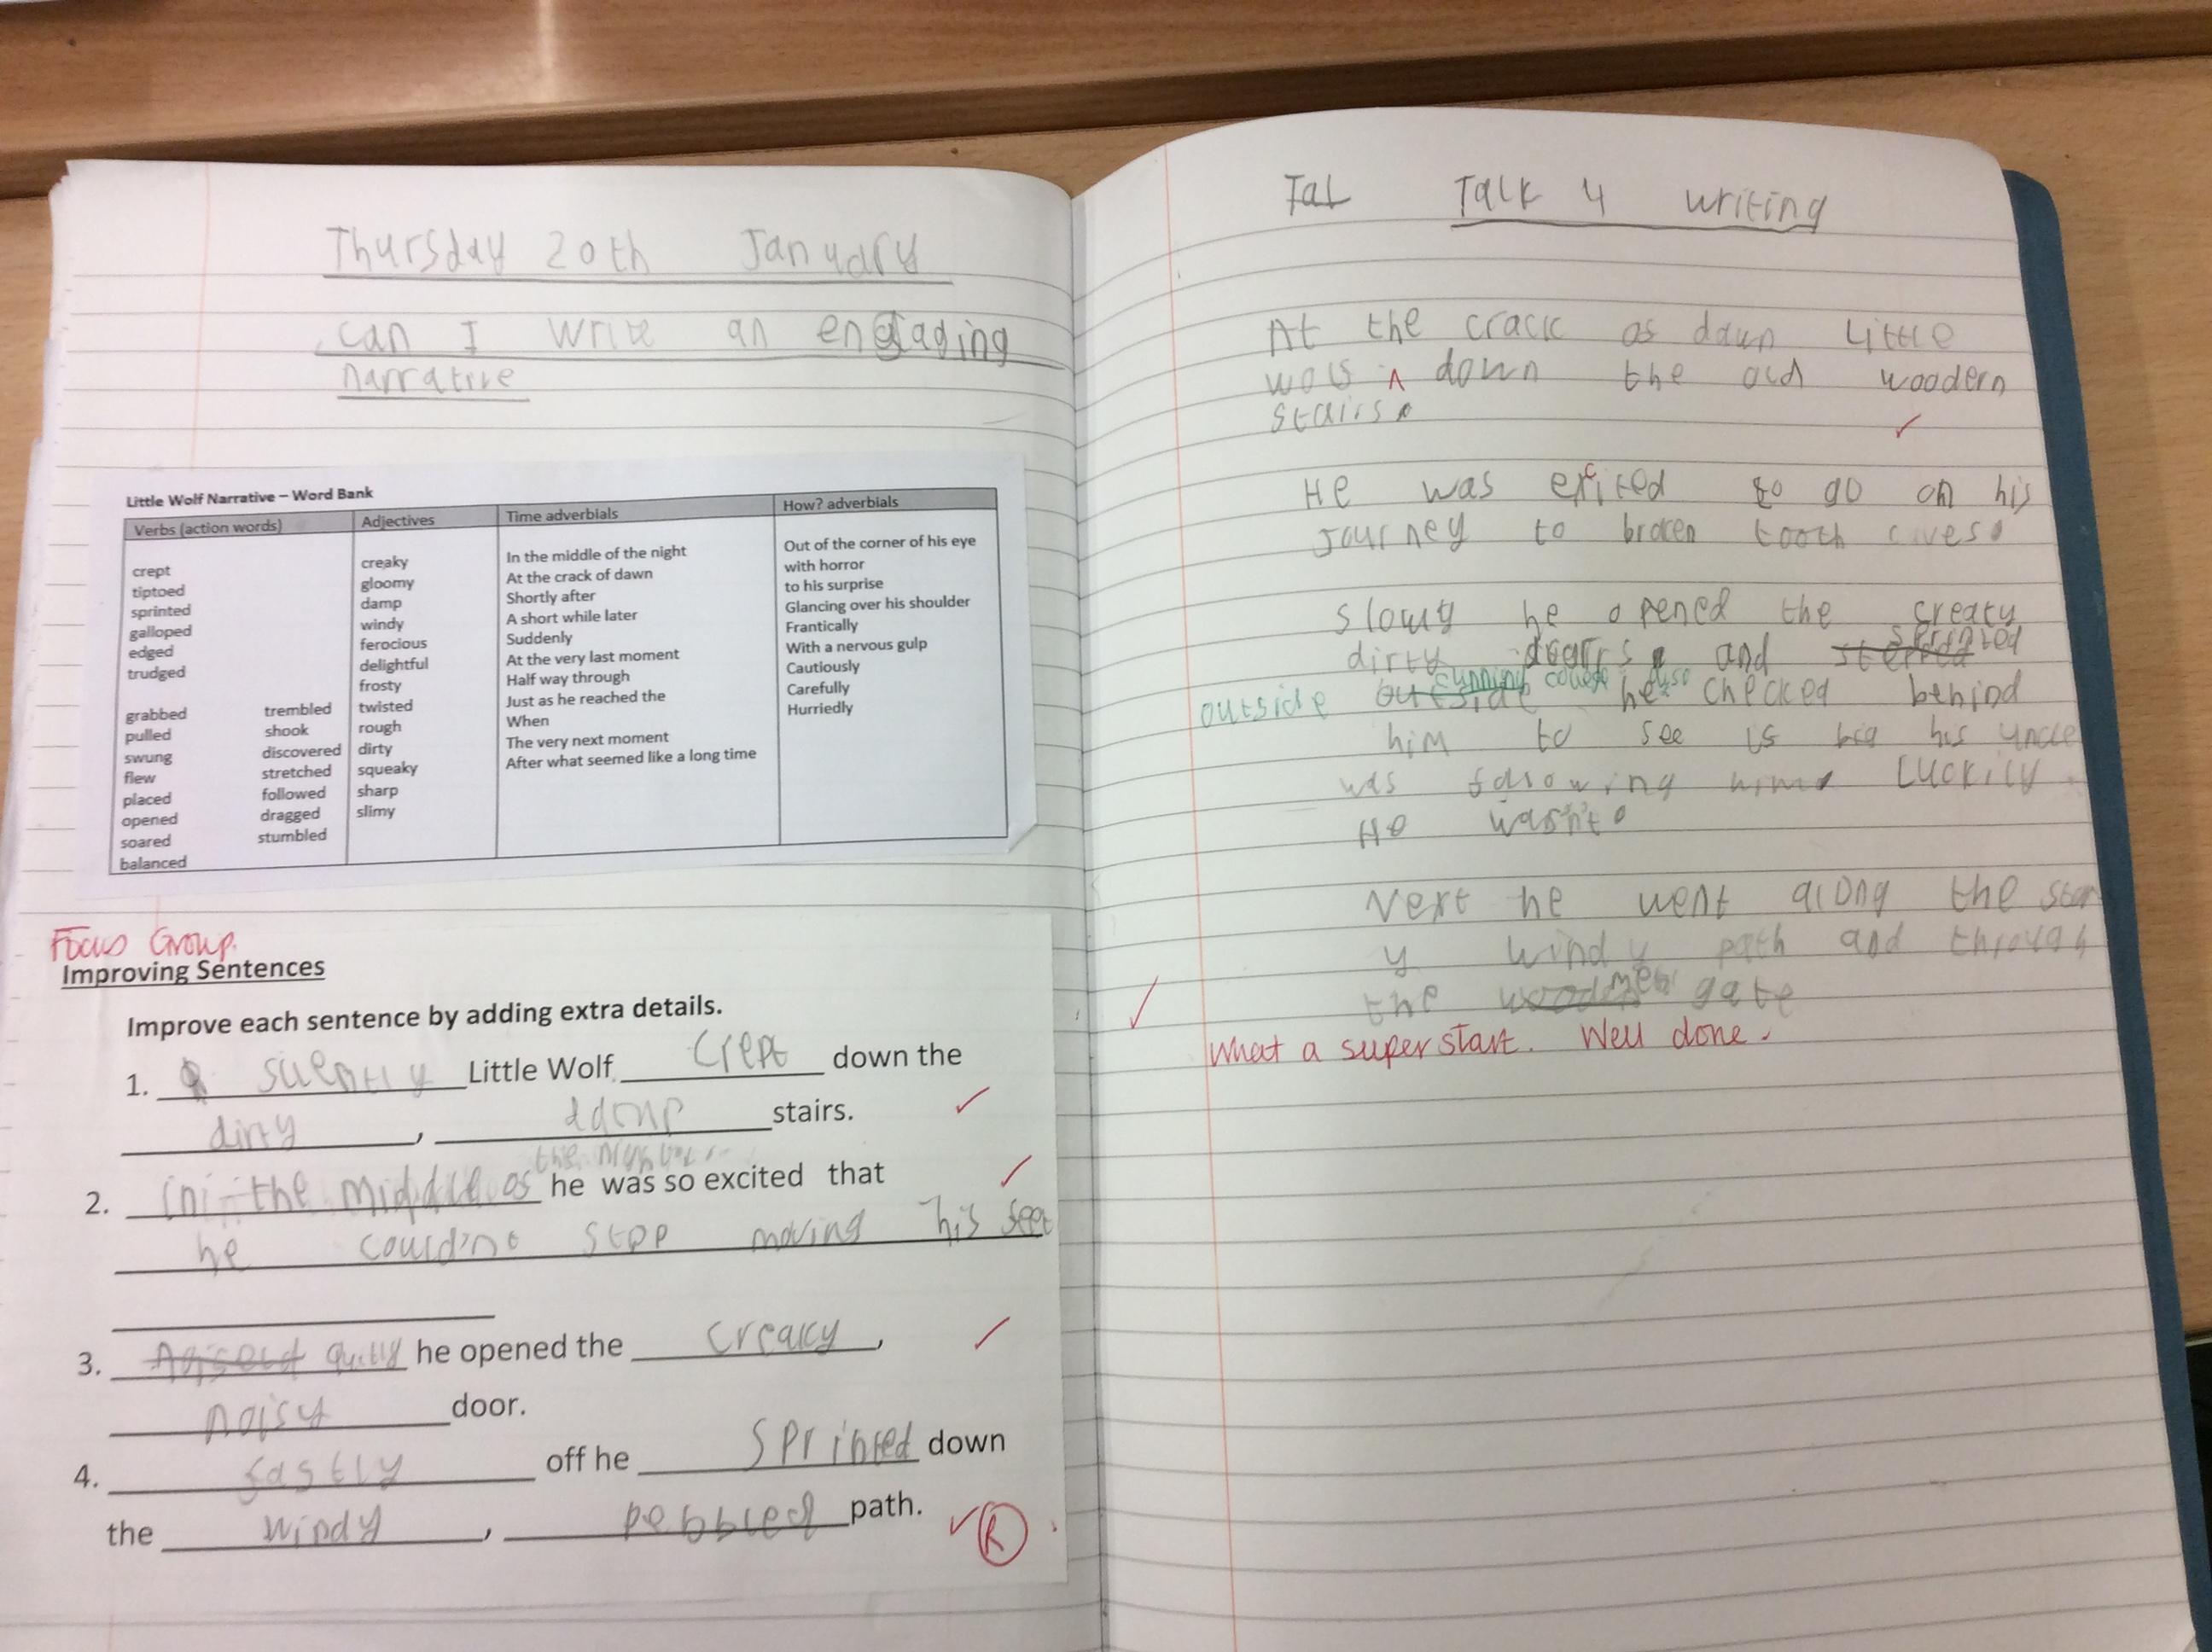 Thursday 20th January
can I write an engading
narrative
Little Wolf Narrative – Word Bank
Verbs (action words) Adjectives Time adverbials How? adverbials
crept
tiptoed
sprinted
galloped
edged
trudged
grabbed trembled
pulled shook
swung discovered
flew stretched
placed followed
opened dragged
soared stumbled
balanced
creaky
gloomy
damp
windy
ferocious
delightful
frosty
twisted
rough
dirty
squeaky
sharp
slimy
In the middle of the night
At the crack of dawn
Shortly after
A short while later
Suddenly
At the very last moment
Half way through
Just as he reached the
When
The very next moment
After what seemed like a long time
Out of the corner of his eye
with horror
to his surprise
Glancing over his shoulder
Frantically
With a nervous gulp
Cautiously
Carefully
Hurriedly
Focus Group.
Improving Sentences
Improve each sentence by adding extra details.
1. silently Little Wolf crept down the
dirty, damp stairs.
the
2. in the middle of he was so excited that
he could'nt stop moving his feet
3. quitly he opened the creaky,
noisy door.
4. fastly off he sprinted down
the windy, pebbled path.
R
Tal Talk 4 writing
At the crack of daun Little
wolf ^ down the old woodern
stairs.
He was excited to go on his
journey to broken tooth caves.
slowly he opened the creaky
sprinted
dirty doors and stepped
cunning
outside outside he checked behind
him to see if big his uncle
was following him. Luckily
He wasn't.
Next he went along the ston
y windy path and through
the wooden gate
What a super start. Well done.